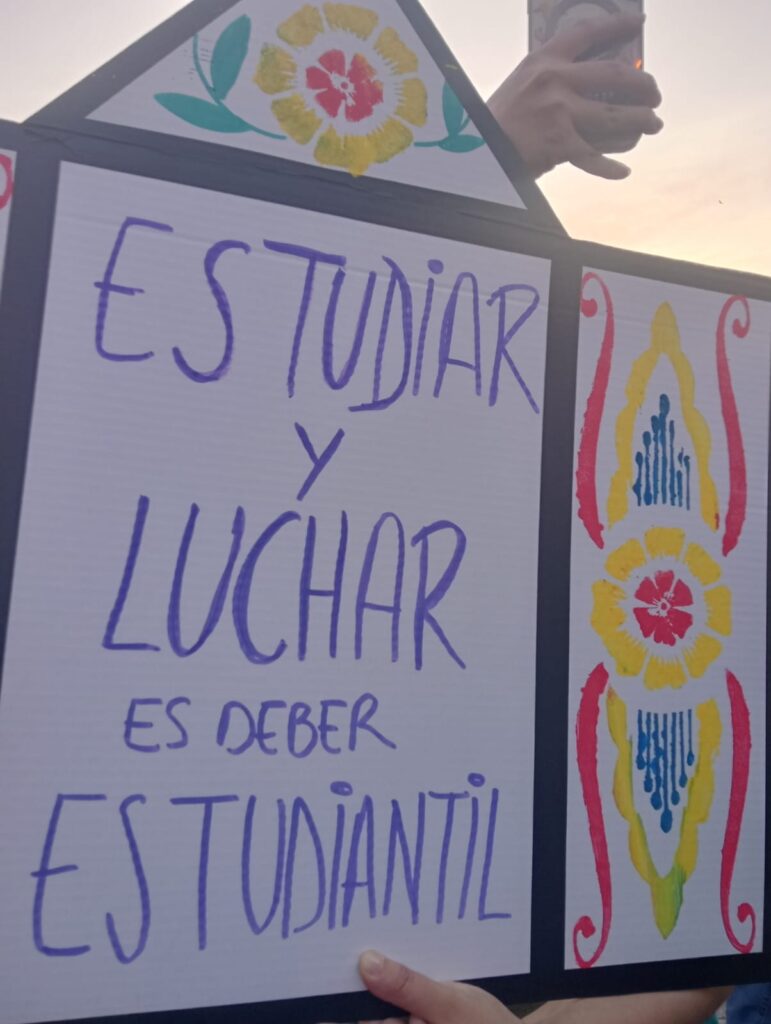 ESTUDIAR
Y
LUCHAR
ES DEBER
ESTUDIANTIL